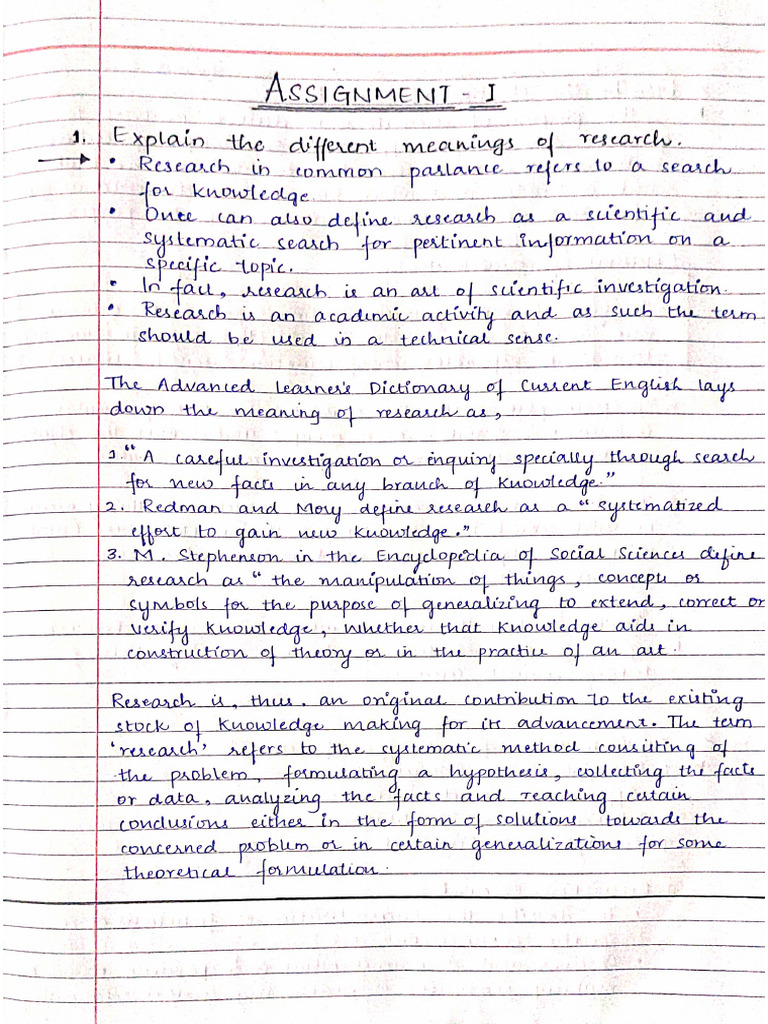 ASSIGNMENT - I
1. Explain the different meanings of research.
→ • Research in common parlance refers to a search
for knowledge
• Once can also define research as a scientific and
systematic search for pertinent information on a
specific topic.
• In fact, research is an art of scientific investigation.
• Research is an academic activity and as such the term
should be used in a technical sense.
The Advanced Learner's Dictionary of Current English lays
down the meaning of research as,
1. "A careful investigation or inquiry specially through search
for new facts in any branch of knowledge."
2. Redman and Mory define research as a "systematized
effort to gain new knowledge."
3. M. Stephenson in the Encyclopedia of Social Sciences define
research as "the manipulation of things, concepts or
symbols for the purpose of generalizing to extend, correct or
verify knowledge, whether that knowledge aids in
construction of theory or in the practice of an art.
Research is, thus. an original contribution to the existing
stock of knowledge making for its advancement. The term
'research' refers to the systematic method consisting of
the problem, formulating a hypothesis, collecting the facts
or data, analyzing the facts and reaching certain
conclusions either in the form of solutions towards the
concerned problem or in certain generalizations for some
theoretical formulation.